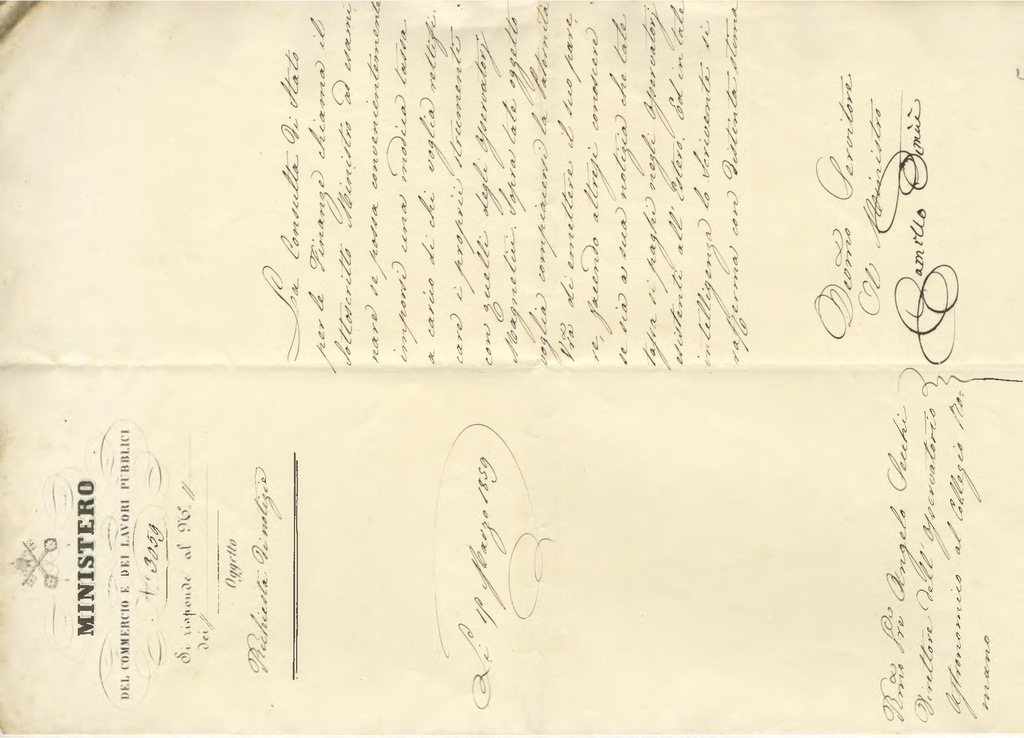 MINISTERO
DEL COMMERCIO E DEI LAVORI PUBBLICI
N.° 3059
Si risponde al N.° //
dei //
Oggetto
Richiesta di notizie
Li 19 Marzo 1859
La Consulta di Stato
per le Finanze chiama il
sottoscritto Ministro ad esami
nare se possa convenientemente
imporsi una modica tassa
a carico di chi voglia rettifi
care i proprii strumenti
con quelli degli Osservatorj
Magnetici. Sopra tale oggetto
voglia compiacersi la Paternità
Vra di emettere il suo pare
re, facendo altresì conoscere
se sia a sua notizia che tale
tassa si paghi negli Osservatorj
esistenti all'Estero. Ed in tale
intelligenza lo Scrivente si
rafferma con distinta stima
Servitore
Il Ministro
Camillo
Rmo Pre Angelo Secchi
Direttore dell'Osservatorio
Astronomico al Collegio Ro-
mano